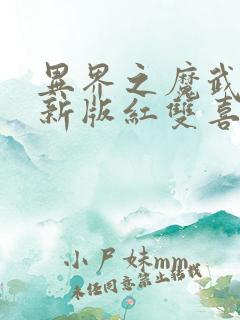 異界之魔武
新版紅雙喜
小尸妹mm
未经同意禁止转载